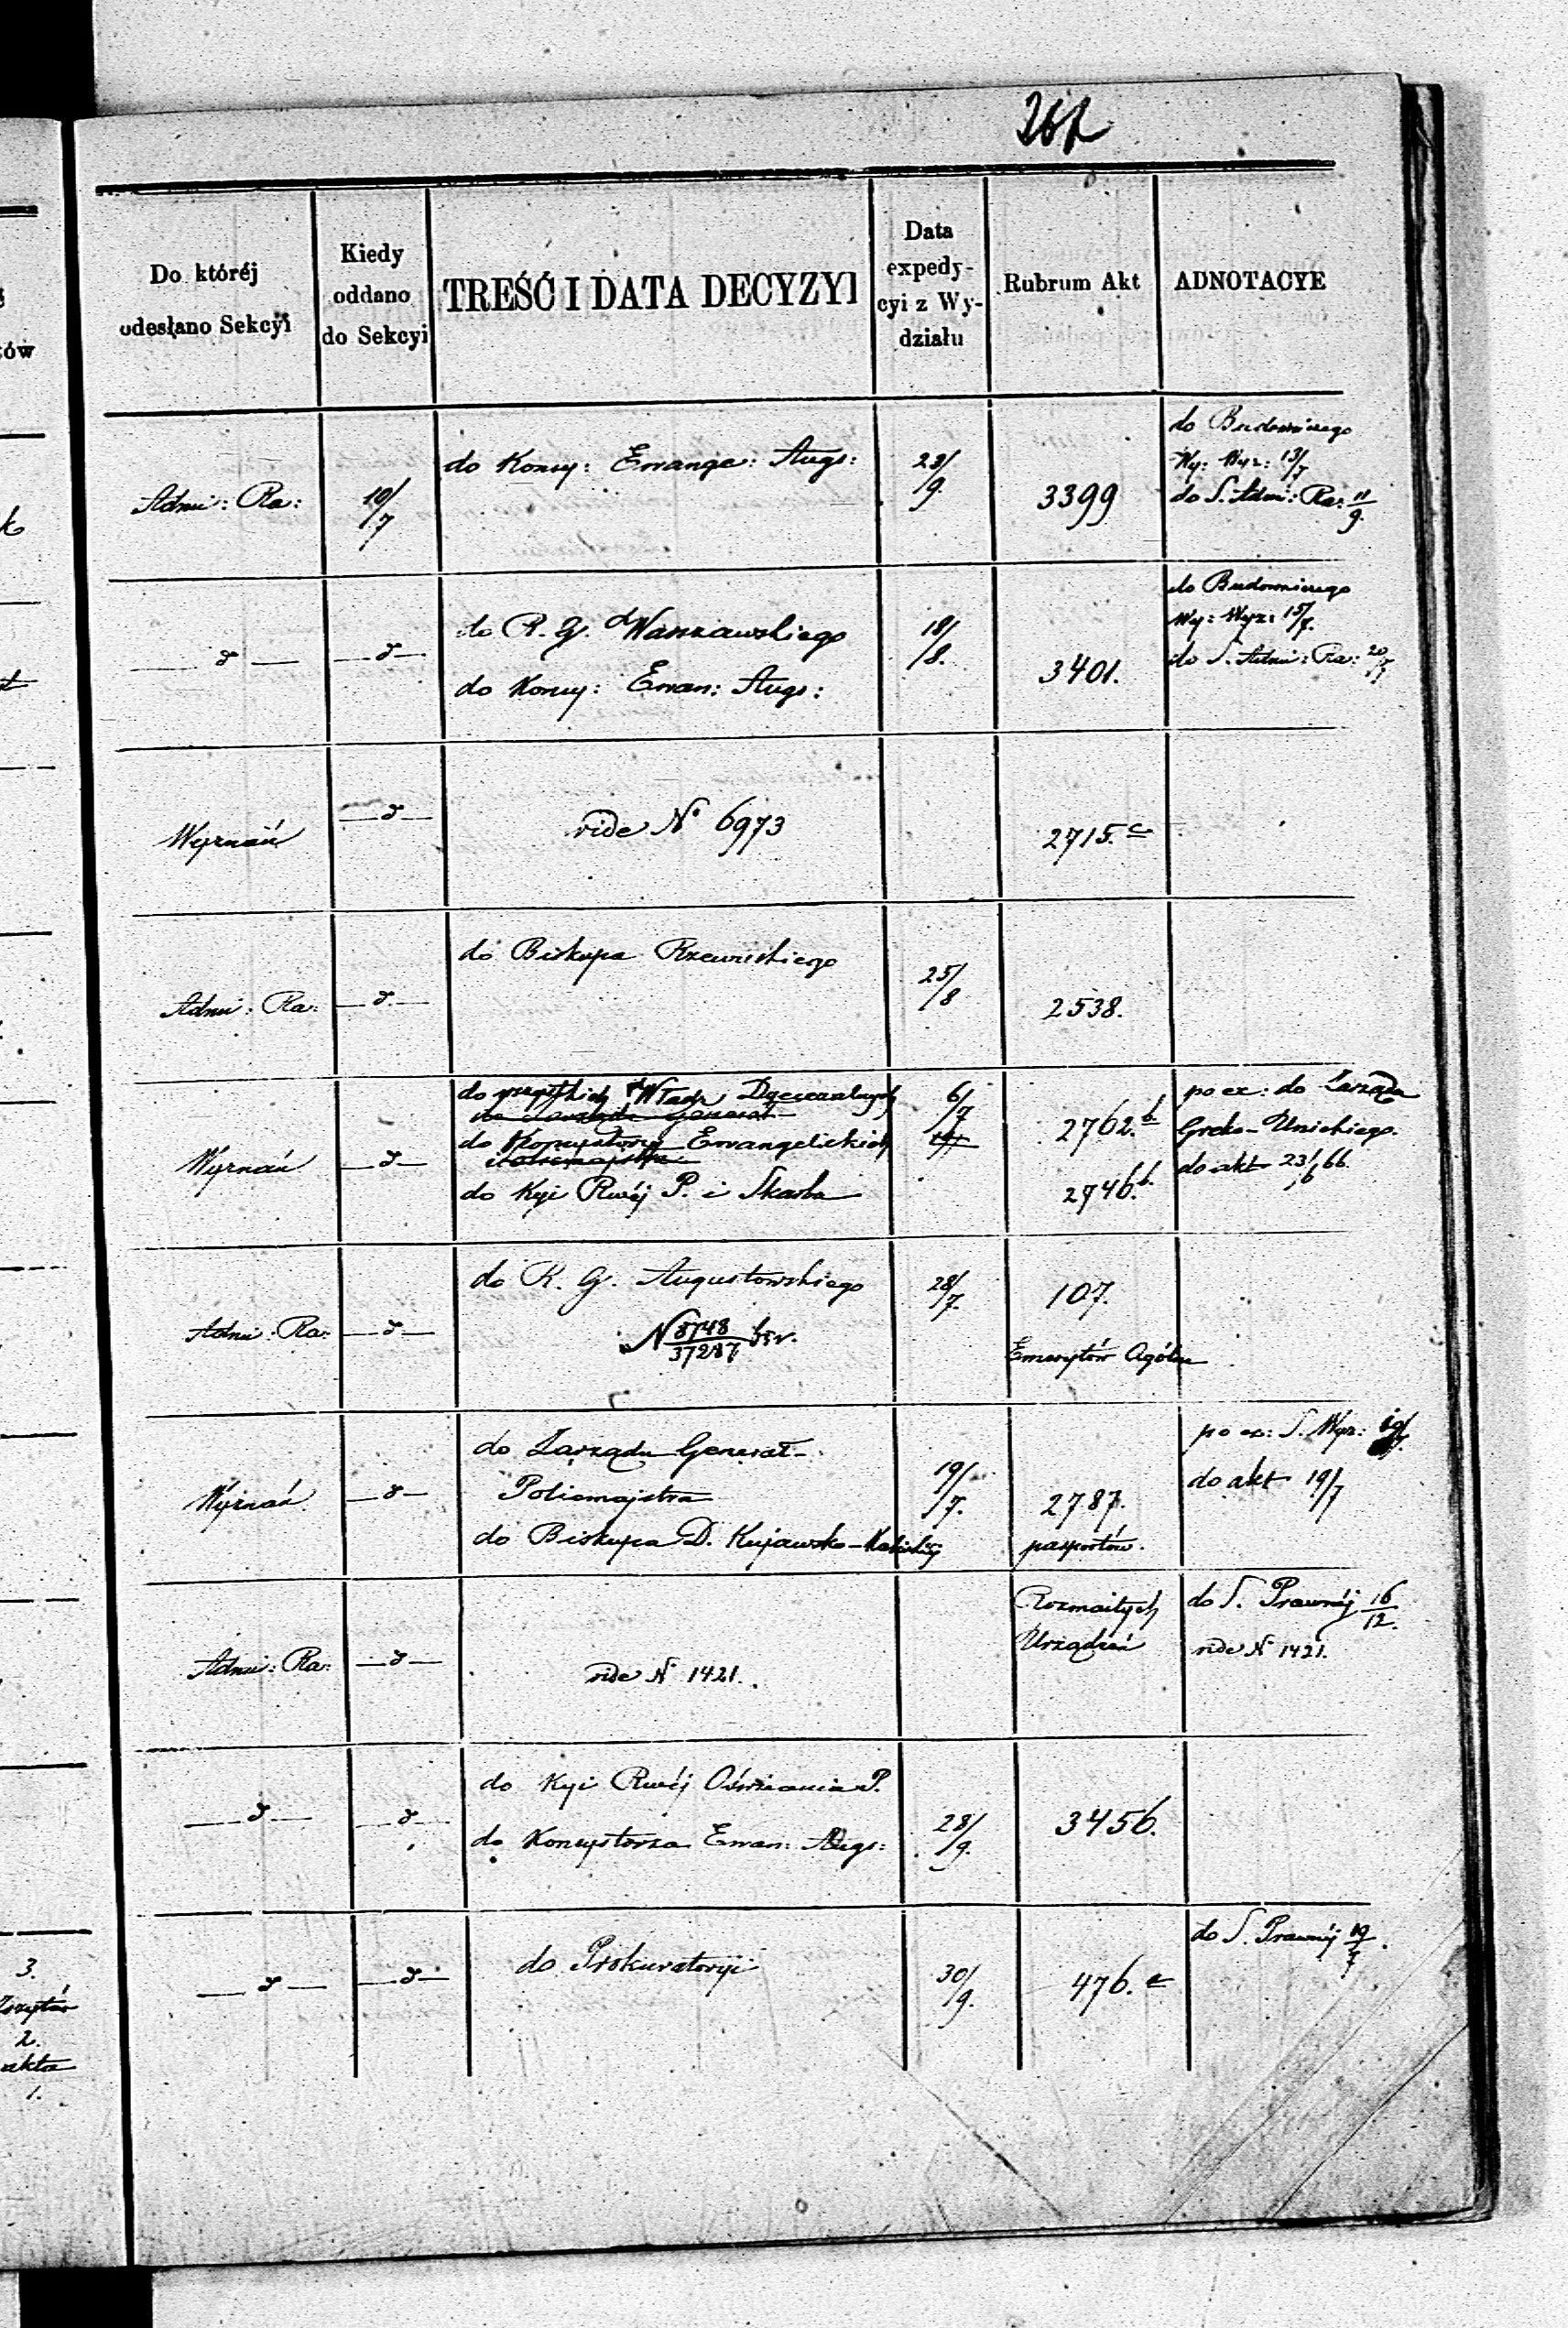 267
Do któréj
odesłano Sekcyi
Kiedy
oddano
do Sekcyi
TREŚĆ I DATA DECYZYI
Data
expedy-
cyi z Wy-
działu
Rubrum Akt
ADNOTACYE
Admi: Ra:
10/7
do Konsy: Ewange: Augs:
23/9.
3399
do Budowniczego
Wy: Wyz: 13/7
do S. Admi: Ra: 11/9.
— d —
— d —
do R. G. Warszawskiego
do Konsy: Ewan: Augs:
18/8.
3401.
do Budowniczego
Wy: Wyz: 15/7.
do S. Admi: Ra: 20/7
Wyznań
— d —
vide No 6973
2715. c
Admi: Ra:
— d —
do Biskupa Rzewuskiego
25/8
2538.
Wyznań
— d —
do wszystkich Władz Dyecezalnych
do Zarządu Generał
do Konsystorzy Ewangelickich
Policmajstra
do Kyi Rwéj P. i Skarbu
6/7
2762. b
2746. b.
po ex: do Zarządu
Greko-Unickiego.
do akt 23/6 66.
Admi: Ra:
— d —
do R. G. Augustowskiego
N 8748/37287
28/7.
107.
Emerytów Ogólne
Wyznań
— d —
do Zarządu Generał-
Policmajstra
do Biskupa D. Kujawsko-Kaliskiéj
19/7.
2787.
pasportów.
po ex: S. Wyz:
do akt 19/7
Admi: Ra:
— d —
vide N 1421.
Rozmaitych
Urządzeń
do S. Prawnéj 16/12.
vide N 1421.
— d —
— d —
do Kyi Rwéj Oświecenia P.
do Konsystorza Ewan: Augs:
28/9.
3456.
— d —
— d —
do Prokuratoryi
30/9.
476.
do S. Prawnéj
3.
2.
akta
1.